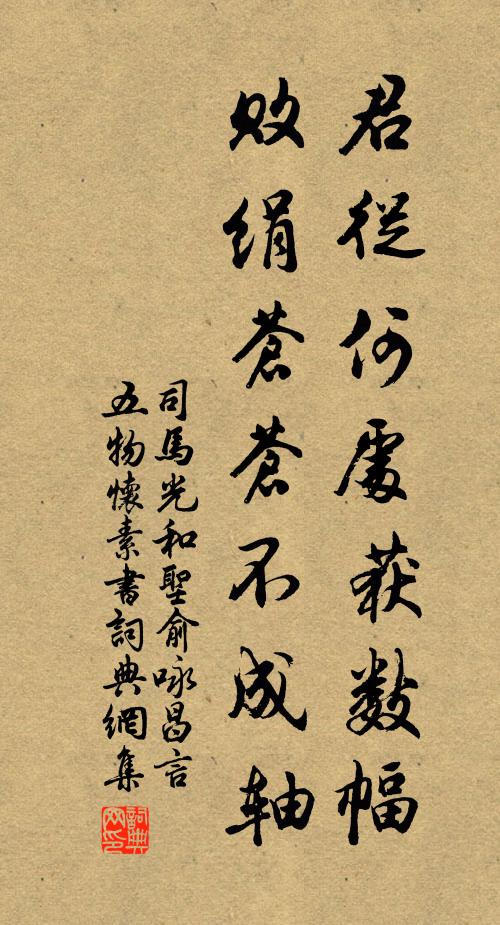 君從何處获數幅
败绢苍苍不成轴
司馬光和聖俞咏昌言
五物懷素書詞典網集
詞典网印